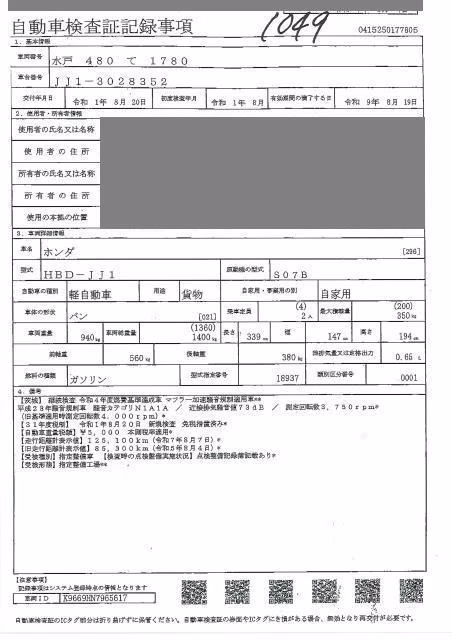 1049
自動車検査証記録事項
0415250177805
1. 基本情報
車両番号 水戸 480 て 1780
車台番号 JJ1-3028352
交付年月日 令和 1年 8月 20日 初度検査年月 令和 1年 8月 有効期間の満了する日 令和 9年 8月 19日
2. 使用者・所有者情報
使用者の氏名又は名称
使用者の住所
所有者の氏名又は名称
所有者の住所
使用の本拠の位置
3. 車両詳細情報
車名 ホンダ [296]
型式 HBD-JJ1 原動機の型式 S07B
自動車の種別 軽自動車 用途 貨物 自家用・事業用の別 自家用
車体の形状 バン [021] 乗車定員 (4) 2人 最大積載量 (200) 350kg
車両重量 940kg 車両総重量 (1360) 1400kg 長さ 339cm 幅 147cm 高さ 194cm
前軸重 560kg 後軸重 380kg 総排気量又は定格出力 0.65L
燃料の種類 ガソリン 型式指定番号 18937 類別区分番号 0001
4. 備考
【茨城】 継続検査 令和4年度燃費基準達成車 マフラー加速騒音規制適用車**
平成28年騒音規制車 騒音カテゴリN1A1A / 近接排気騒音値73dB / 測定回転数3,750rpm*
(旧基準適用時測定回転数4,000rpm)*
【31年度税制】 令和1年8月20日 新規検査 免税措置済み*
【自動車重量税額】¥5,000 本則税率適用*
【走行距離計表示値】125,100km(令和7年8月7日)*
【旧走行距離計表示値】85,300km(令和5年8月4日)*
【受検種別】指定整備車 【検査時の点検整備実施状況】点検整備記録簿記載あり*
【受検形態】指定整備工場**
【注意事項】
記録事項はシステム登録時点の情報となります
車両ID K9669HN7965617
自動車検査証のICタグ部分は折り曲げずに保管ください。自動車検査証の券面やICタグにき損がある場合、無効となり再交付が必要です。